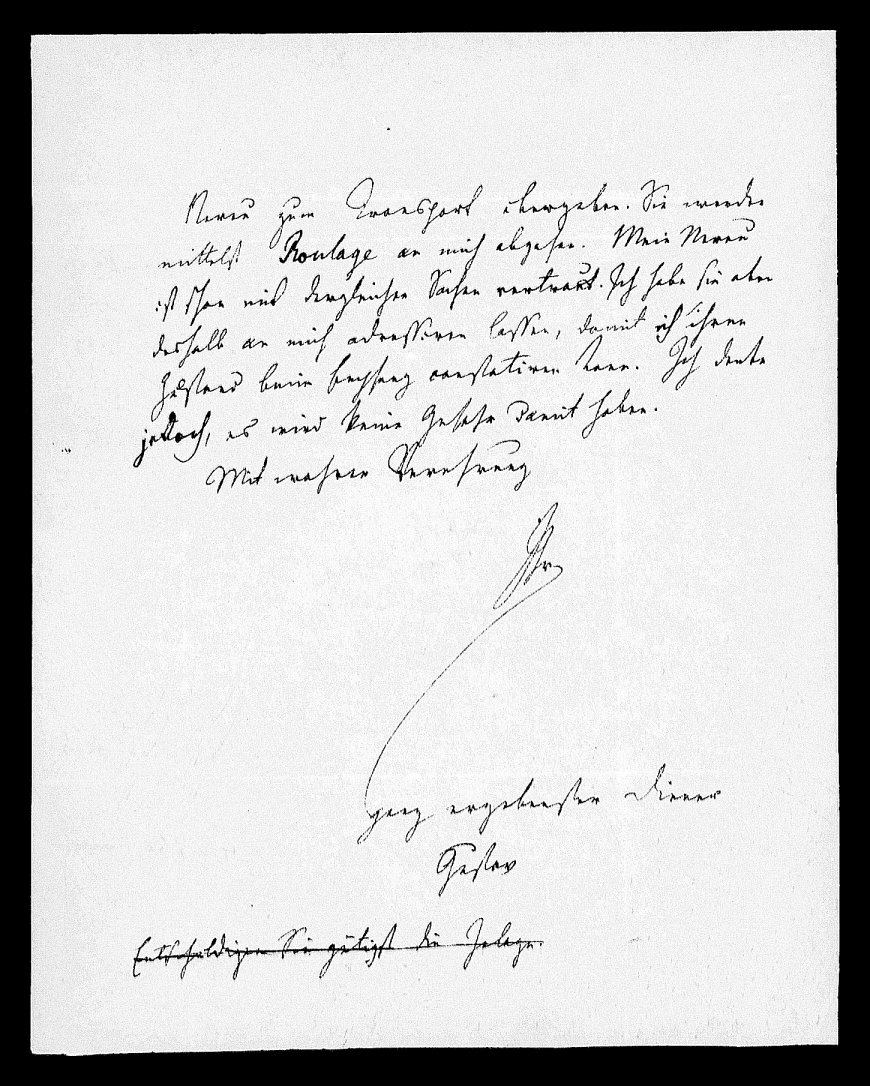 Neveu zum Transport übergeben. Sie werden
mittelst Roulage an mich abgehen. Mein Neveu
ist schon mit dergleichen Sachen vertraut. Ich habe sie aber
deshalb an mich adressiren lassen, damit ich ihren
Zustand beim Empfang constatiren kann. Ich denke
jedoch, es wird keine Gefahr damit haben.
Mit wahrer Verehrung
Ihr
ganz ergebenster Diener
Gustav
Entschuldigen Sie gütigst die